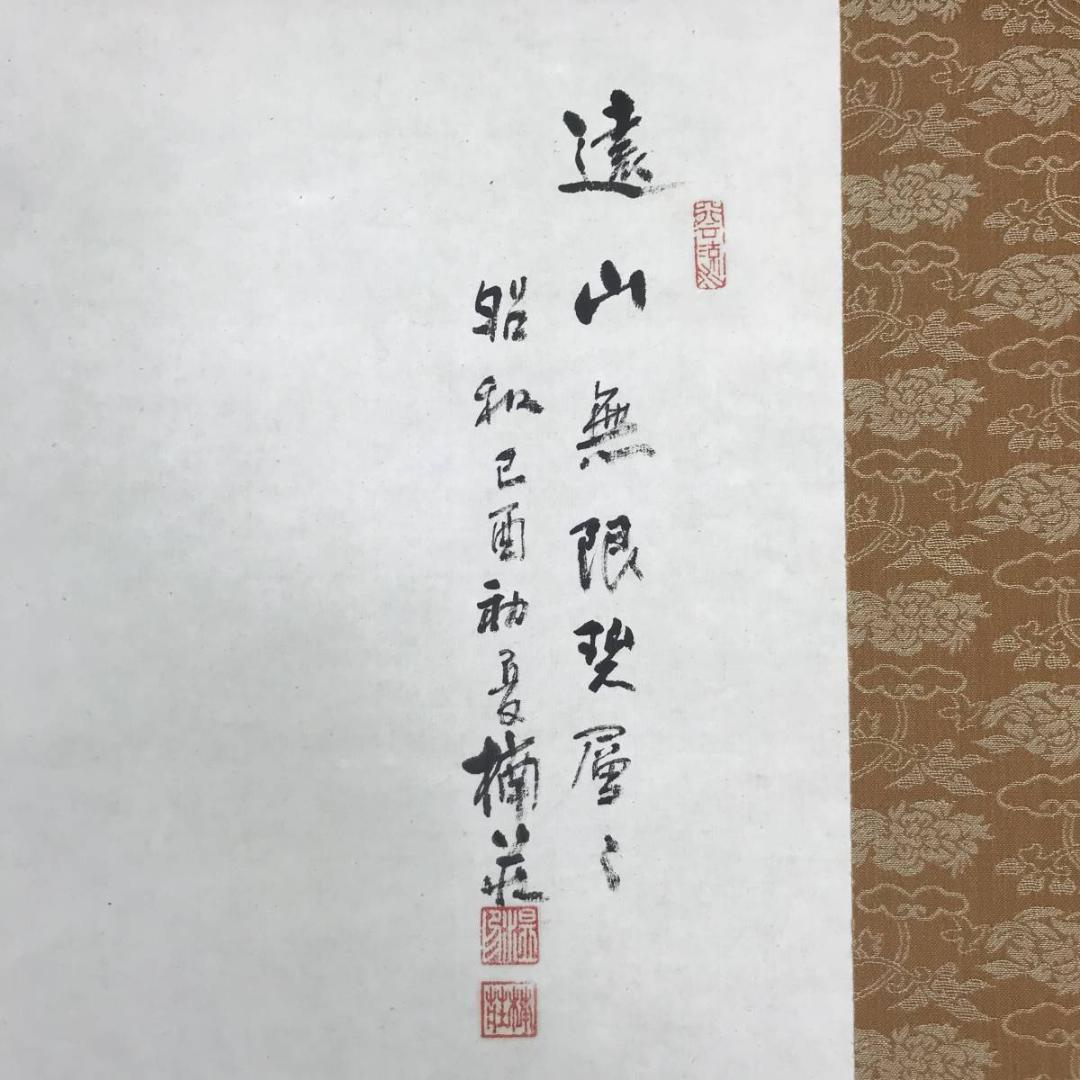 遠山無限碧層々
昭和己酉初夏楠莊
楠莊